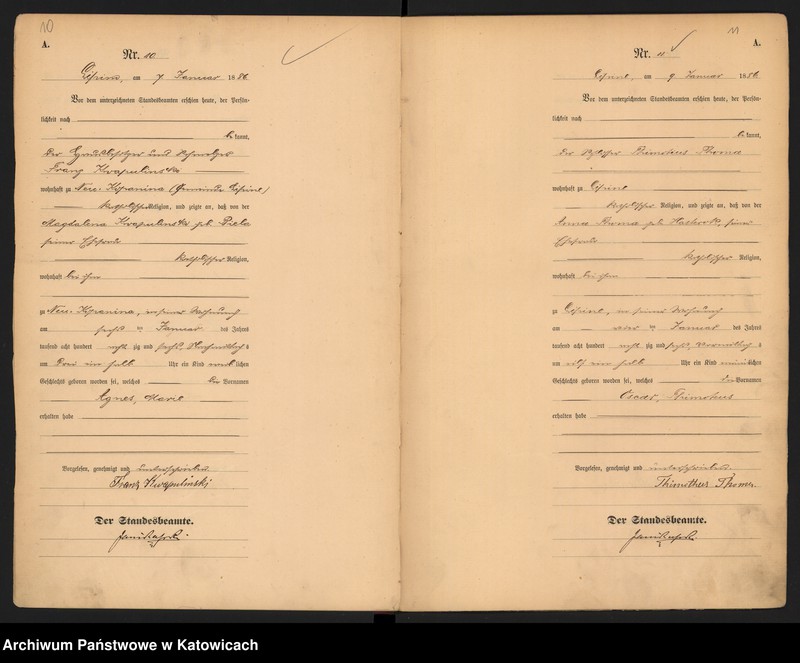 10
A.
Nr. 10
am 7 Januar 1886
Vor dem unterzeichneten Standesbeamten erschien heute, der Persön-
lichkeit nach
be kannt,
der
Franz Kwapulinski
wohnhaft zu Neu-
katholischer Religion, und zeigte an, daß von der
Magdalena Kwapulinska geb.
seiner Ehefrau
katholischer Religion,
wohnhaft bei ihm
zu Neu- in seiner Wohnung
am sechs ten Januar des Jahres
tausend acht hundert acht zig und sechs Nachmittags
um drei ein halb Uhr ein Kind weib lichen
Geschlechts geboren worden sei, welches die Vornamen
Agnes, Marie
erhalten habe
Vorgelesen, genehmigt und unterschrieben
Franz Kwapulinski
Der Standesbeamte.
11
A.
Nr. 11
am 9 Januar 1886
Vor dem unterzeichneten Standesbeamten erschien heute, der Persön-
lichkeit nach
be kannt,
der Thomas
wohnhaft zu
katholischer Religion, und zeigte an, daß von der
seiner
Ehefrau
katholischer Religion,
wohnhaft bei ihm
zu in seiner Wohnung
am vier ten Januar des Jahres
tausend acht hundert acht zig und sechs, Vormittags
um elf ein halb Uhr ein Kind männlichen
Geschlechts geboren worden sei, welches die Vornamen
Oscar,
erhalten habe
Vorgelesen, genehmigt und unterschrieben.
Thimotheus Thomas.
Der Standesbeamte.
Archiwum Państwowe w Katowicach